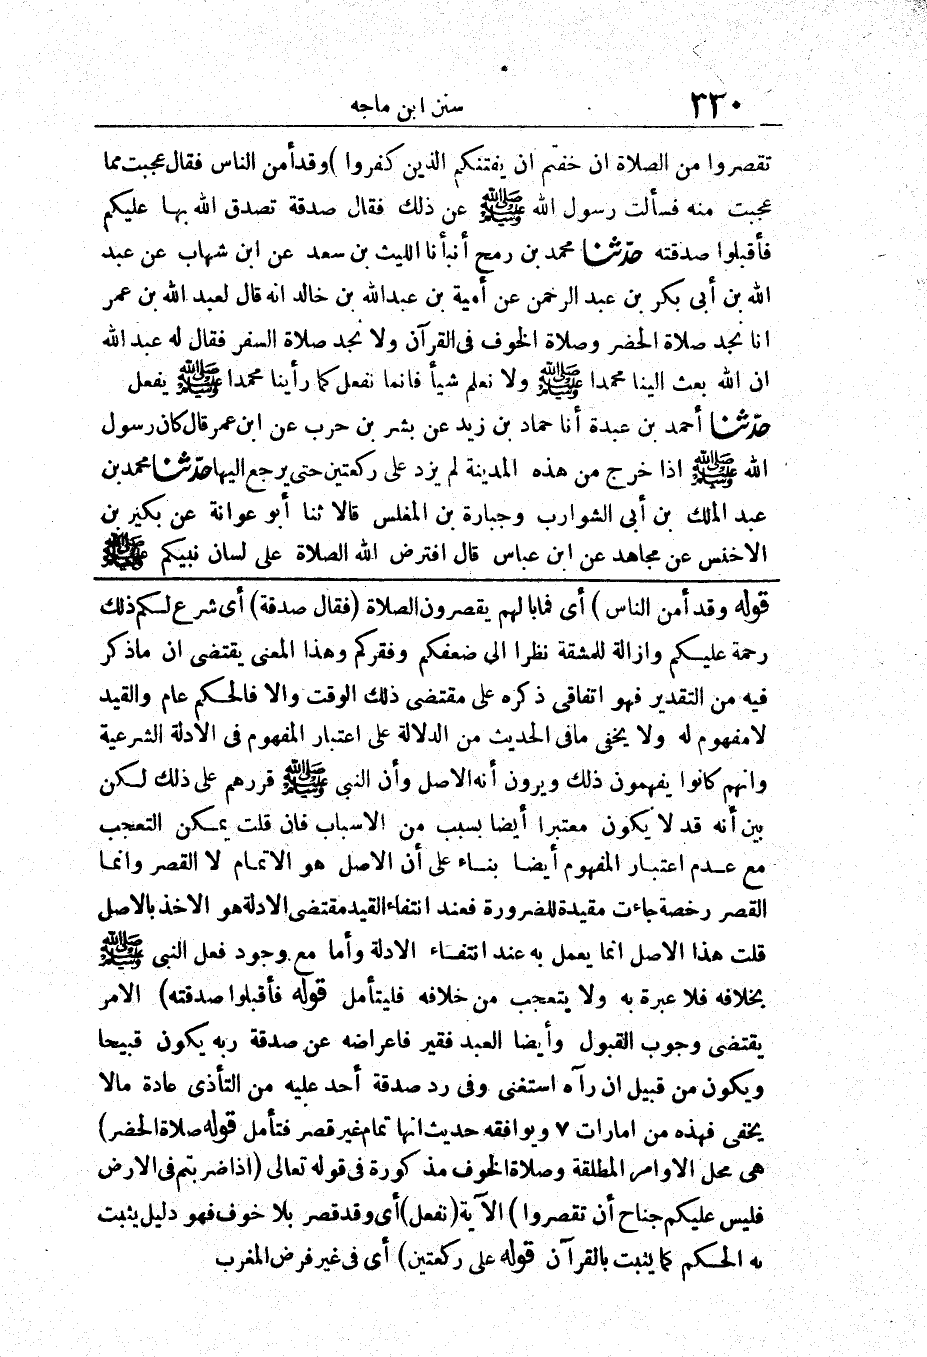 ٣٣٠
سنن ابن ماجه
تقصروا من الصلاة ان خفتم ان يفتنكم الذين كفروا ) وقد أمن الناس فقال عجبت مما
عجبت منه فسألت رسول الله ﷺ عن ذلك فقال صدقة تصدق الله بها عليكم
فأقبلوا صدقته حدّثنا محمد بن رمح أنبأنا الليث بن سعد عن ابن شهاب عن عبد
الله بن أبى بكر بن عبد الرحمن عن أمية بن عبدالله بن خالد انه قال لعبد الله بن عمر
انا نجد صلاة الحضر وصلاة الخوف فى القرآن ولا نجد صلاة السفر فقال له عبد الله
ان الله بعث الينا محمدا ﷺ ولا نعلم شيأ فانما نفعل كما رأينا محمدا ﷺ يفعل
حدّثنا أحمد بن عبدة أنا حماد بن زيد عن بشر بن حرب عن ابن عمر قال كان رسول
الله ﷺ اذا خرج من هذه المدينة لم يزد على ركعتين حتى يرجع اليها حدّثنا محمد بن
عبد الملك بن أبى الشوارب وجبارة بن المغلس قالا ثنا أبو عوانة عن بكير بن
الاخنس عن مجاهد عن ابن عباس قال افترض الله الصلاة على لسان نبيكم ﷺ
قوله وقد أمن الناس ) أى فما بالهم يقصرون الصلاة (فقال صدقة) أى شرع لكم ذلك
رحمة عليكم وازالة للمشقة نظرا الى ضعفكم وفقركم وهذا المعنى يقتضى ان ماذكر
فيه من التقدير فهو اتفاقى ذكره على مقتضى ذلك الوقت والا فالحكم عام والقيد
لامفهوم له ولا يخفى مافى الحديث من الدلالة على اعتبار المفهوم فى الادلة الشرعية
وانهم كانوا يفهمون ذلك ويرون أنه الاصل وأن النبى ﷺ قررهم على ذلك لكن
بين أنه قد لا يكون معتبرا أيضا بسبب من الاسباب فان قلت يمكن التعجب
مع عدم اعتبار المفهوم أيضا بناء على أن الاصل هو الاتمام لا القصر وانما
القصر رخصة جاءت مقيدة للضرورة فعند انتفاء القيد مقتضى الادلة هو الاخذ بالاصل
قلت هذا الاصل انما يعمل به عند انتفاء الادلة وأما مع وجود فعل النبى ﷺ
بخلافه فلا عبرة به ولا يتعجب من خلافه فليتأمل قوله فأقبلوا صدقته) الامر
يقتضى وجوب القبول وأيضا العبد فقير فاعراضه عن صدقة ربه يكون قبيحا
ويكون من قبيل ان رآه استغنى وفى رد صدقة أحد عليه من التأذى عادة مالا
يخفى فهذه من امارات ٧ ويوافقه حديث انها تمام غير قصر فتأمل قوله صلاة الحضر)
هى محل الاوامر المطلقة وصلاة الخوف مذكورة فى قوله تعالى (اذا ضربتم فى الارض
فليس عليكم جناح أن تقصروا ) الآية (نفعل) أى وقد قصر بلا خوف فهو دليل يثبت
به الحكم كما يثبت بالقرآن قوله على ركعتين) أى فى غير فرض المغرب